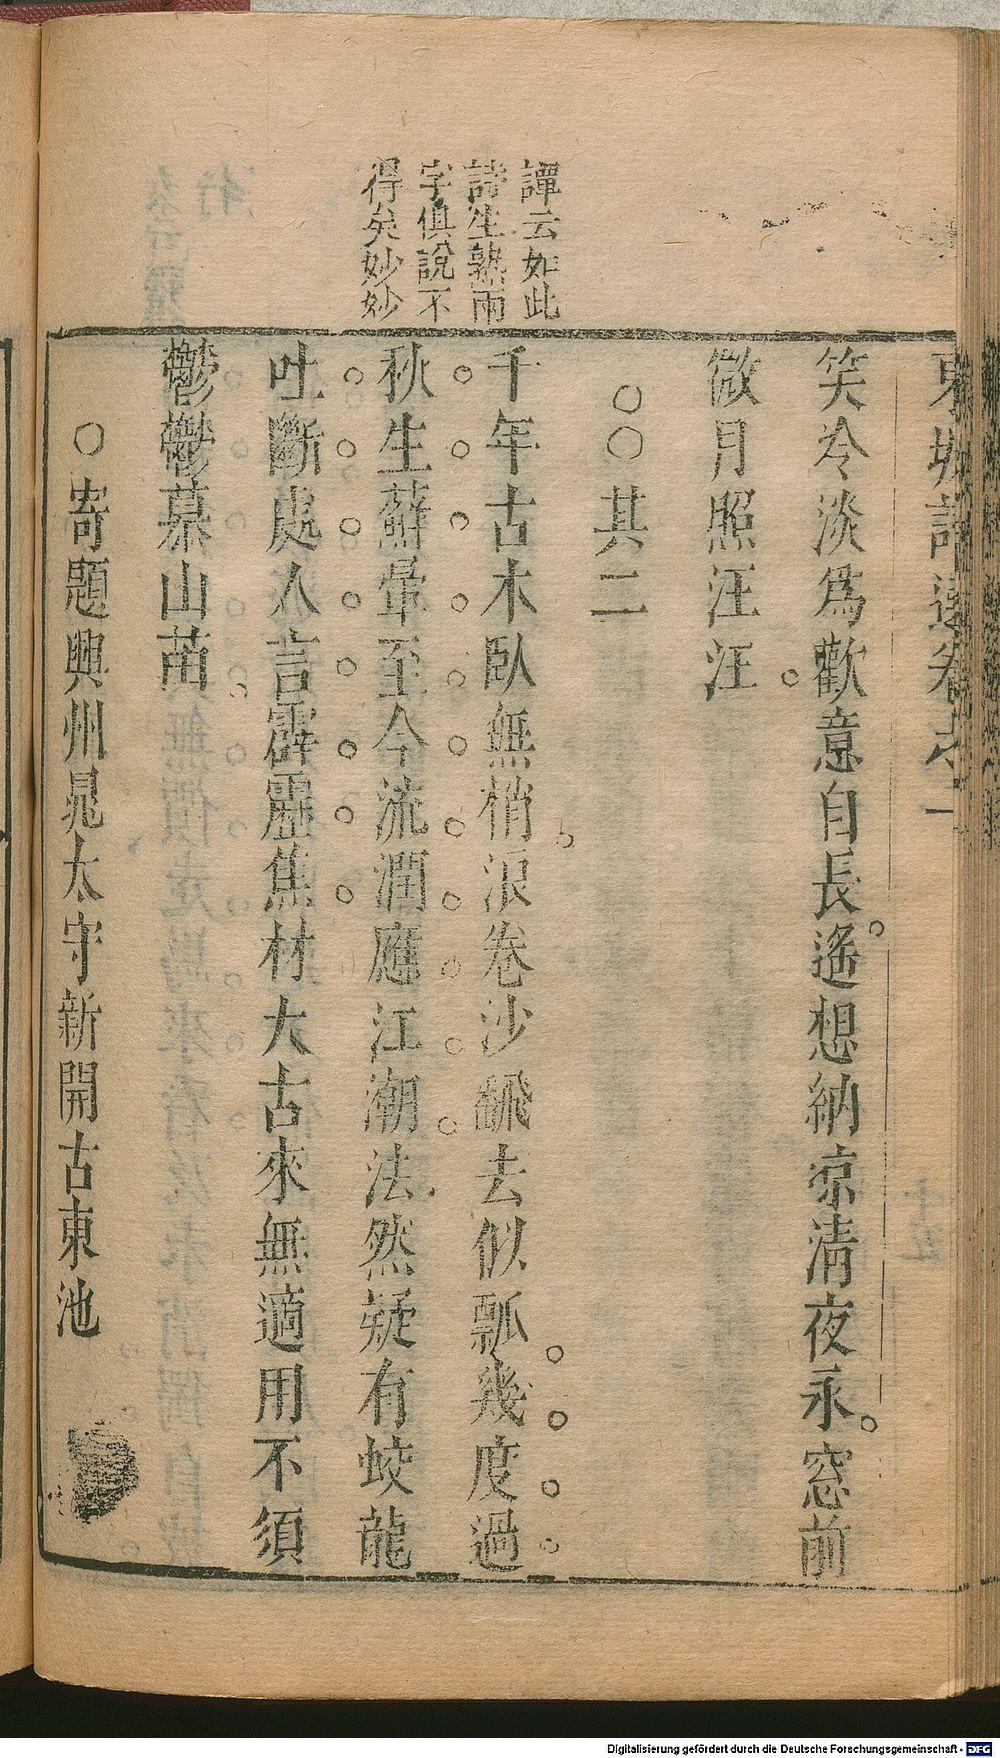 東坡詩選卷之一
笑冷淡爲歡意自長遙想納凉清夜永窓前
微月照汪汪
○○其二
千年古木臥無梢浪卷沙飜去似瓢幾度過
秋生蘚暈至今流潤應江潮法然疑有蛟龍
吐斷處人言霹靂焦材大古來無適用不須
鬱鬱慕山苗
○寄題興州晁太守新開古東池
譚云如此
詩生熟兩
字俱說不
得矣妙妙
Digitalisierung gefördert durch die Deutsche Forschungsgemeinschaft - DFG